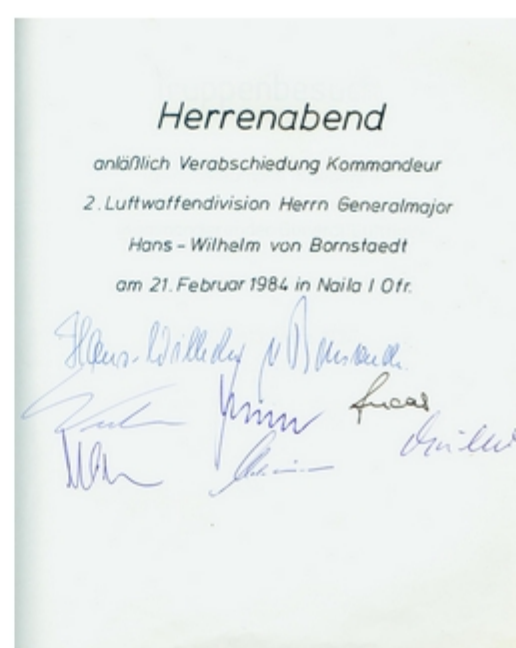 Herrenabend
anläßlich Verabschiedung Kommandeur
2. Luftwaffendivision Herrn Generalmajor
Hans - Wilhelm von Bornstaedt
am 21. Februar 1984 in Naila / Ofr.
Hans-Wilhelm v Bornstaedt
Lucas
Müller